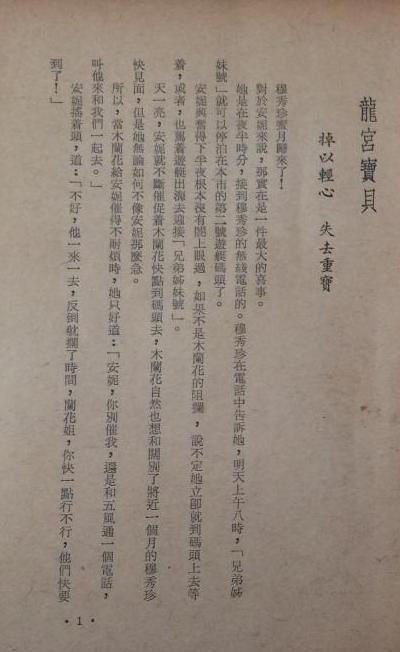 龍宮寶貝
掉以輕心 失去重寶
穆秀珍蜜月歸來了！
對於安妮來說，那實在是一件最大的喜事。
她是在夜半時分，接到穆秀珍的無綫電話的。穆秀珍在電話中告訴她，明天上午八時，「兄弟姊
妹號」就可以停泊在本市的第二號遊艇碼頭了。
安妮興奮得下半夜根本沒有闔上眼過，如果不是木蘭花的阻攔，說不定她立即就到碼頭上去等
着，或者，也駕着遊艇出海去迎接「兄弟姊妹號」。
天一亮，安妮就不斷催促着木蘭花快點到碼頭去，木蘭花自然也想和闊別了將近一個月的穆秀珍
快見面，但是她無論如何不像安妮那麼急。
所以，當木蘭花給安妮催得不耐煩時，她只好道：「安妮，你別催我，還是和五風通一個電話，
叫他來和我們一起去。」
安妮搖着頭，道：「不好，他一來一去，反倒躭擱了時間，蘭花姐，你快一點行不行，他們快要
到了！」
•1•